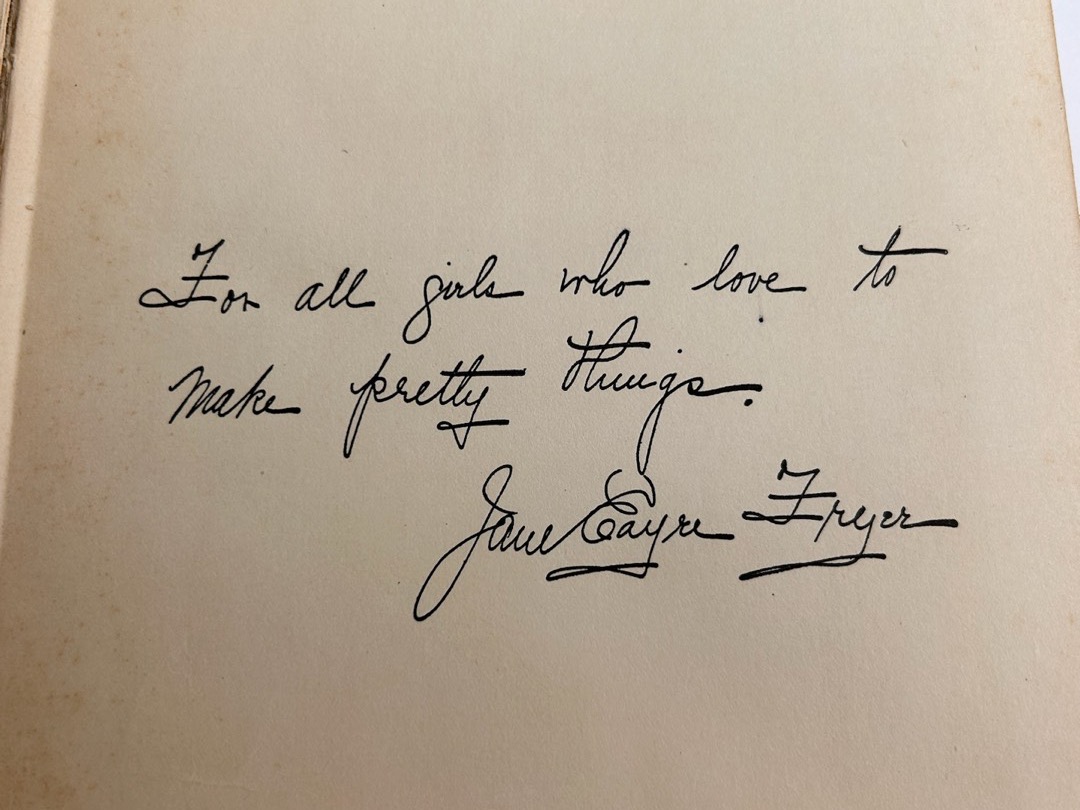 For all girls who love to
make pretty things.
Jane Eayre Fryer